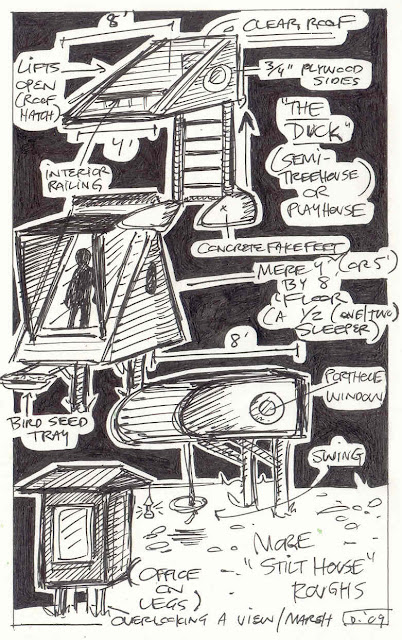 8'
CLEAR ROOF
LIFTS
OPEN
(ROOF
HATCH)
3/4" PLYWOOD
SIDES
"THE
DUCK"
(SEMI-
TREEHOUSE)
OR
PLAYHOUSE
4'
INTERIOR
RAILING
CONCRETE FAKE FEET
MERE 4' (OR 5')
BY 8'
FLOOR
(A 1/2 (ONE/TWO)
SLEEPER)
8'
BIRD SEED
TRAY
PORTHOLE
WINDOW
SWING
MORE
"STILT HOUSE"
ROUGHS
(OFFICE
ON
LEGS)
OVERLOOKING A VIEW/MARSH
D. '09